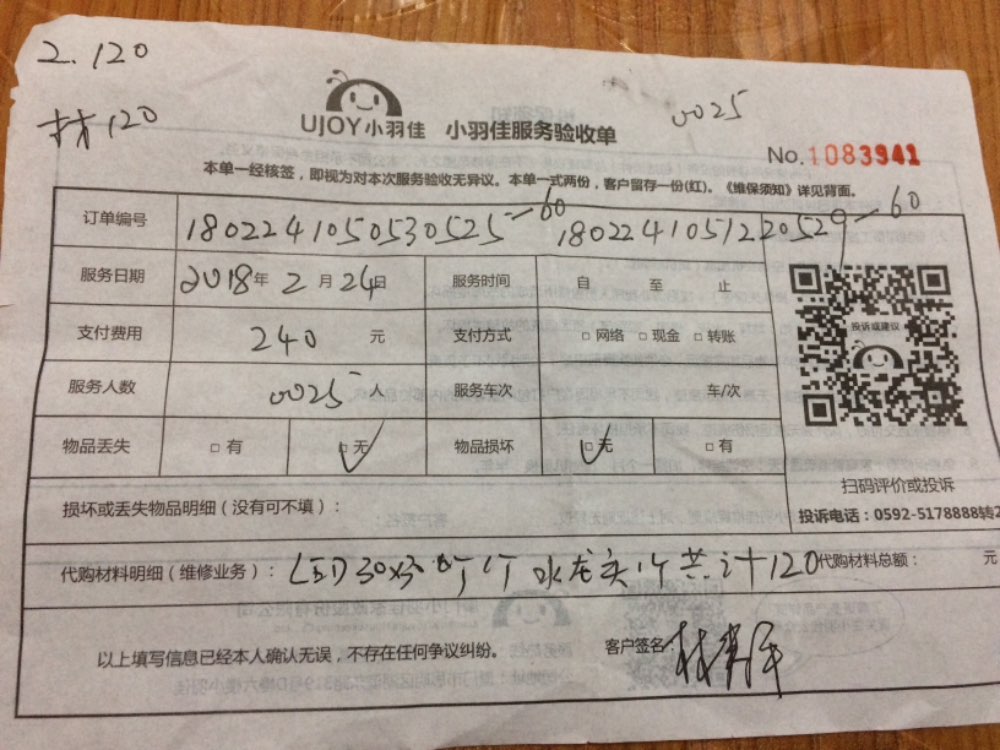 2.120
材120
UJOY小羽佳 小羽佳服务验收单
0025
No.1083941
本单一经核签，即视为对本次服务验收无异议。本单一式两份，客户留存一份(红)。《维保须知》详见背面。
订单编号 1802241050530525-60 1802241051220529-60
服务日期 2018年 2月 24日 服务时间 自 至 止
支付费用 240 元 支付方式 □网络 □现金 □转账
投诉或建议
服务人数 0025 人 服务车次 车/次
物品丢失 □有 □无 物品损坏 □无 □有
扫码评价或投诉
损坏或丢失物品明细（没有可不填）：
投诉电话：0592-5178888转2
代购材料明细（维修业务）：LED 30x30灯1个 水龙头1个 共计120 代购材料总额： 元
以上填写信息已经本人确认无误，不存在任何争议纠纷。
客户签名：